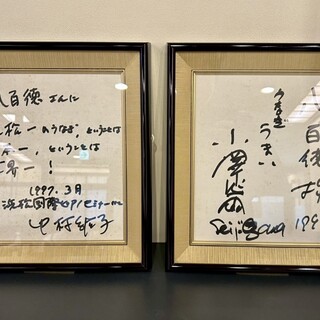 百徳さんに
松一のうなぎ、ということは
一、ということは
界一!
1997. 3月
浜松国際ピアノセミナーにて
中村紘子
百徳
199
うなぎ うまい
小澤征爾
Seiji Ozawa